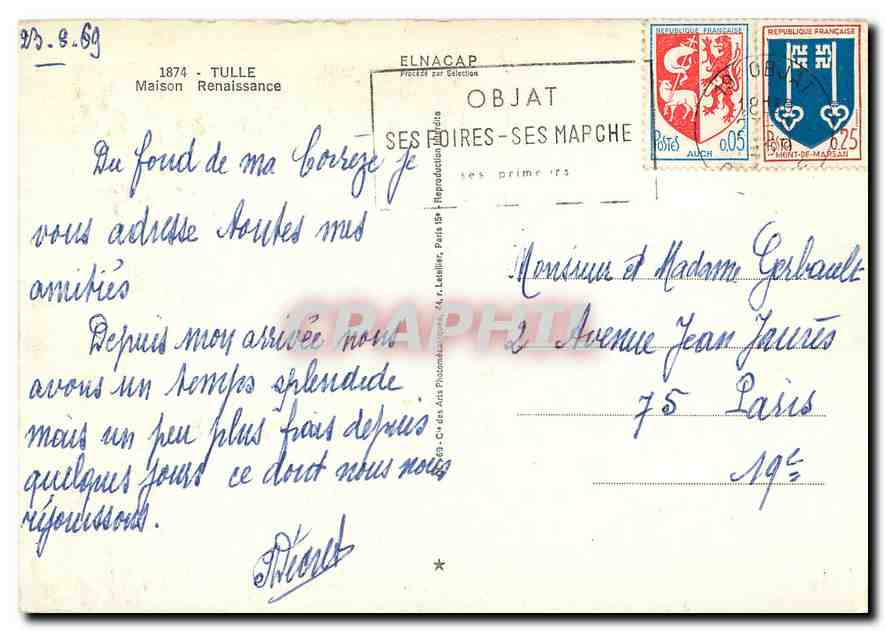 23.8.69
1874 - TULLE
Maison Renaissance
ELNACAP
Procédé par Sélection
OBJAT
SES FOIRES - SES MARCHE
ses primeurs
REPUBLIQUE FRANÇAISE
POSTES
0,05
AUCH
REPUBLIQUE FRANÇAISE
POSTES
0,25
MONT-DE-MARSAN
OBJAT
Du fond de ma Corrèze je
vous adresse toutes mes
amitiés
Depuis mon arrivée nous
avons un temps splendide
mais un peu plus frais depuis
quelques jours ce dont nous nous
réjouissons.
Monsieur et Madame Gerbault
2 Avenue Jean Jaurès
75 Paris
19e
Cie des Arts Photomécaniques, 44, r. Letellier, Paris 15e - Reproduction Interdite
CPAPHIL